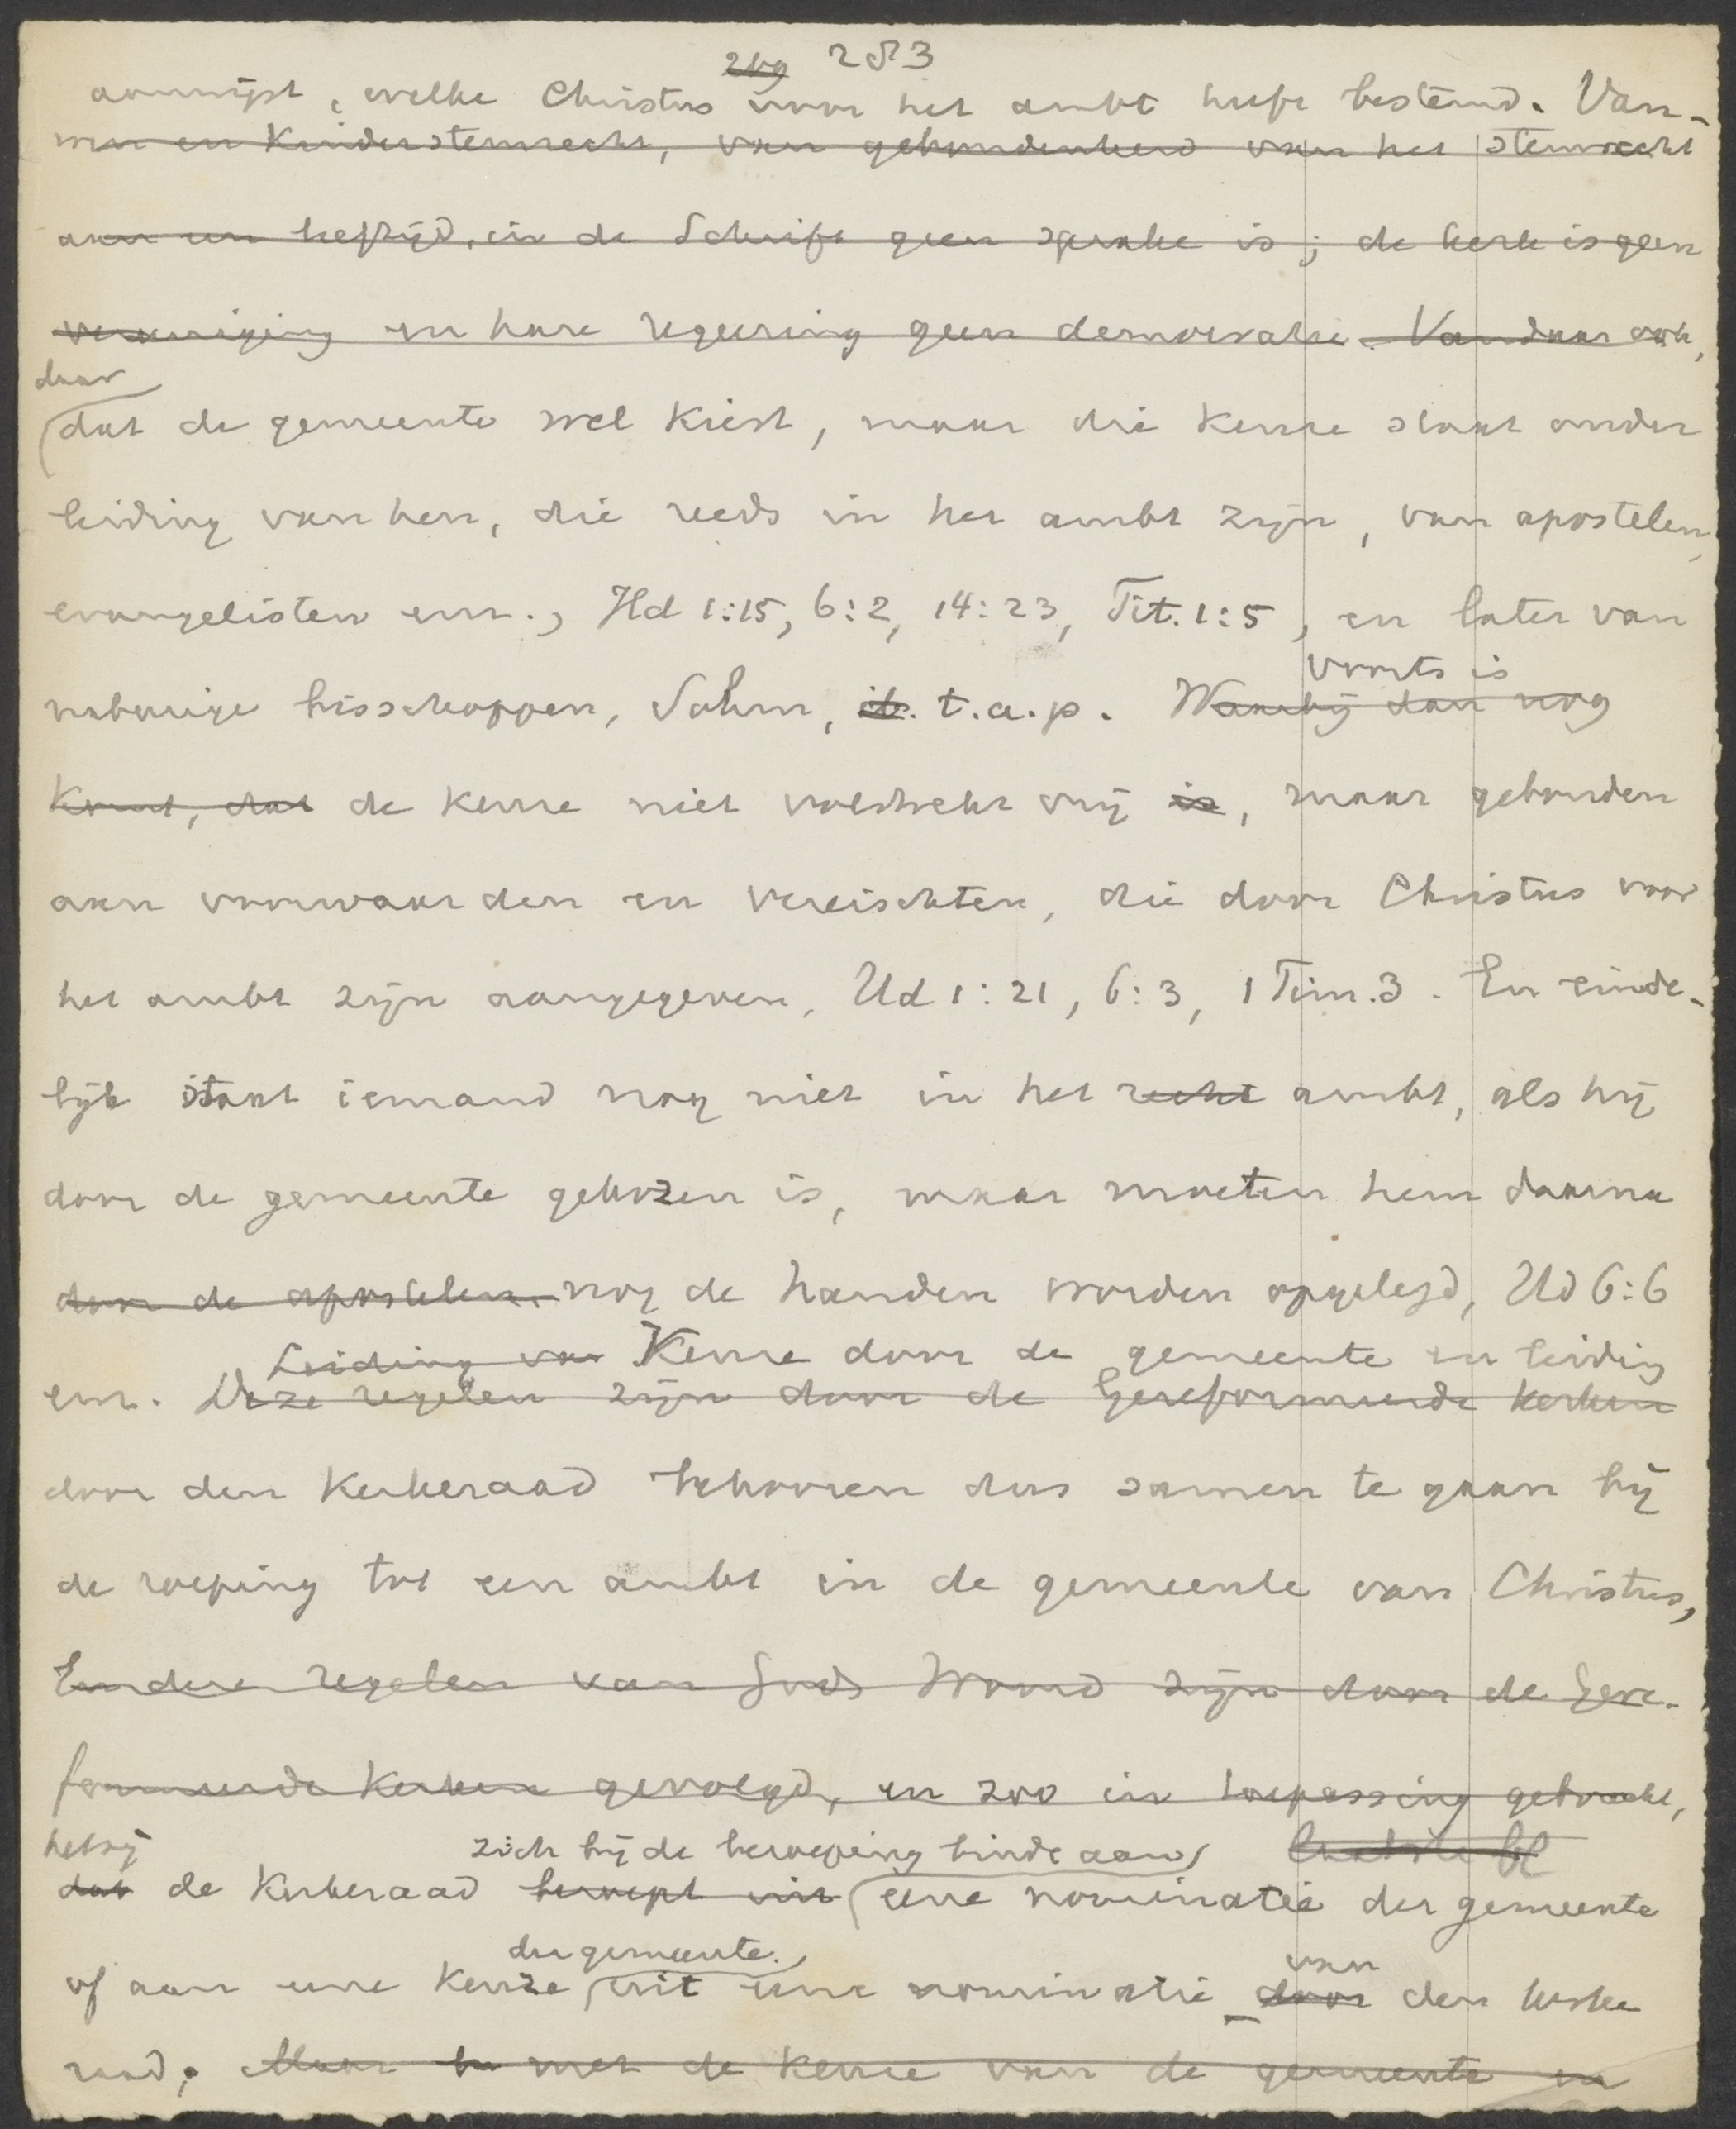 253
aanwijst, welke Christus voor het ambt heeft bestemd. Van-
en Kinderstemrecht, van gebondenheid van het stemrecht
aan een leeftijd, in de Schrift geen sprake is; de kerk is geen
vereeniging en hare regeering geen democratie. Vandaar ook,
daar
dat de gemeente wel kiest, maar die keuze staat onder
leiding van hen, die reeds in het ambt zijn, van apostelen,
evangelisten enz., Hd 1:15, 6:2, 14:23, Tit. 1:5, en later van
voorts is
naburige bisschoppen, Sohm, ib. t.a.p. Waarbij dan nog
komt, dat de keuze niet volstrekt vrij is, maar gebonden
aan voorwaarden en vereischten, die door Christus voor
het ambt zijn aangegeven, Hd 1:21, 6:3, 1 Tim. 3. En einde-
lijk staat iemand nog niet in het recht ambt, als hij
door de gemeente gekozen is, maar moeten hem daarna
door de apostelen nog de handen worden opgelegd, Hd 6:6
Leiding van Keuze door de gemeente en leiding
enz. Deze regelen zijn door de Gereformeerde kerken
door den Kerkeraad behooren dus samen te gaan bij
de roeping tot een ambt in de gemeente van Christus,
regelen van Gods Woord zijn door de Gere-
formeerde Kerken gevolgd, en zoo in toepassing gebracht,
hetzij zich bij de beroeping binde aan
dat de Kerkeraad beroept uit eene nominatie der gemeente
der gemeente van
of aan eene Keuze uit eene nominatie door den kerke
raad. Maar met de keuze van de gemeente en